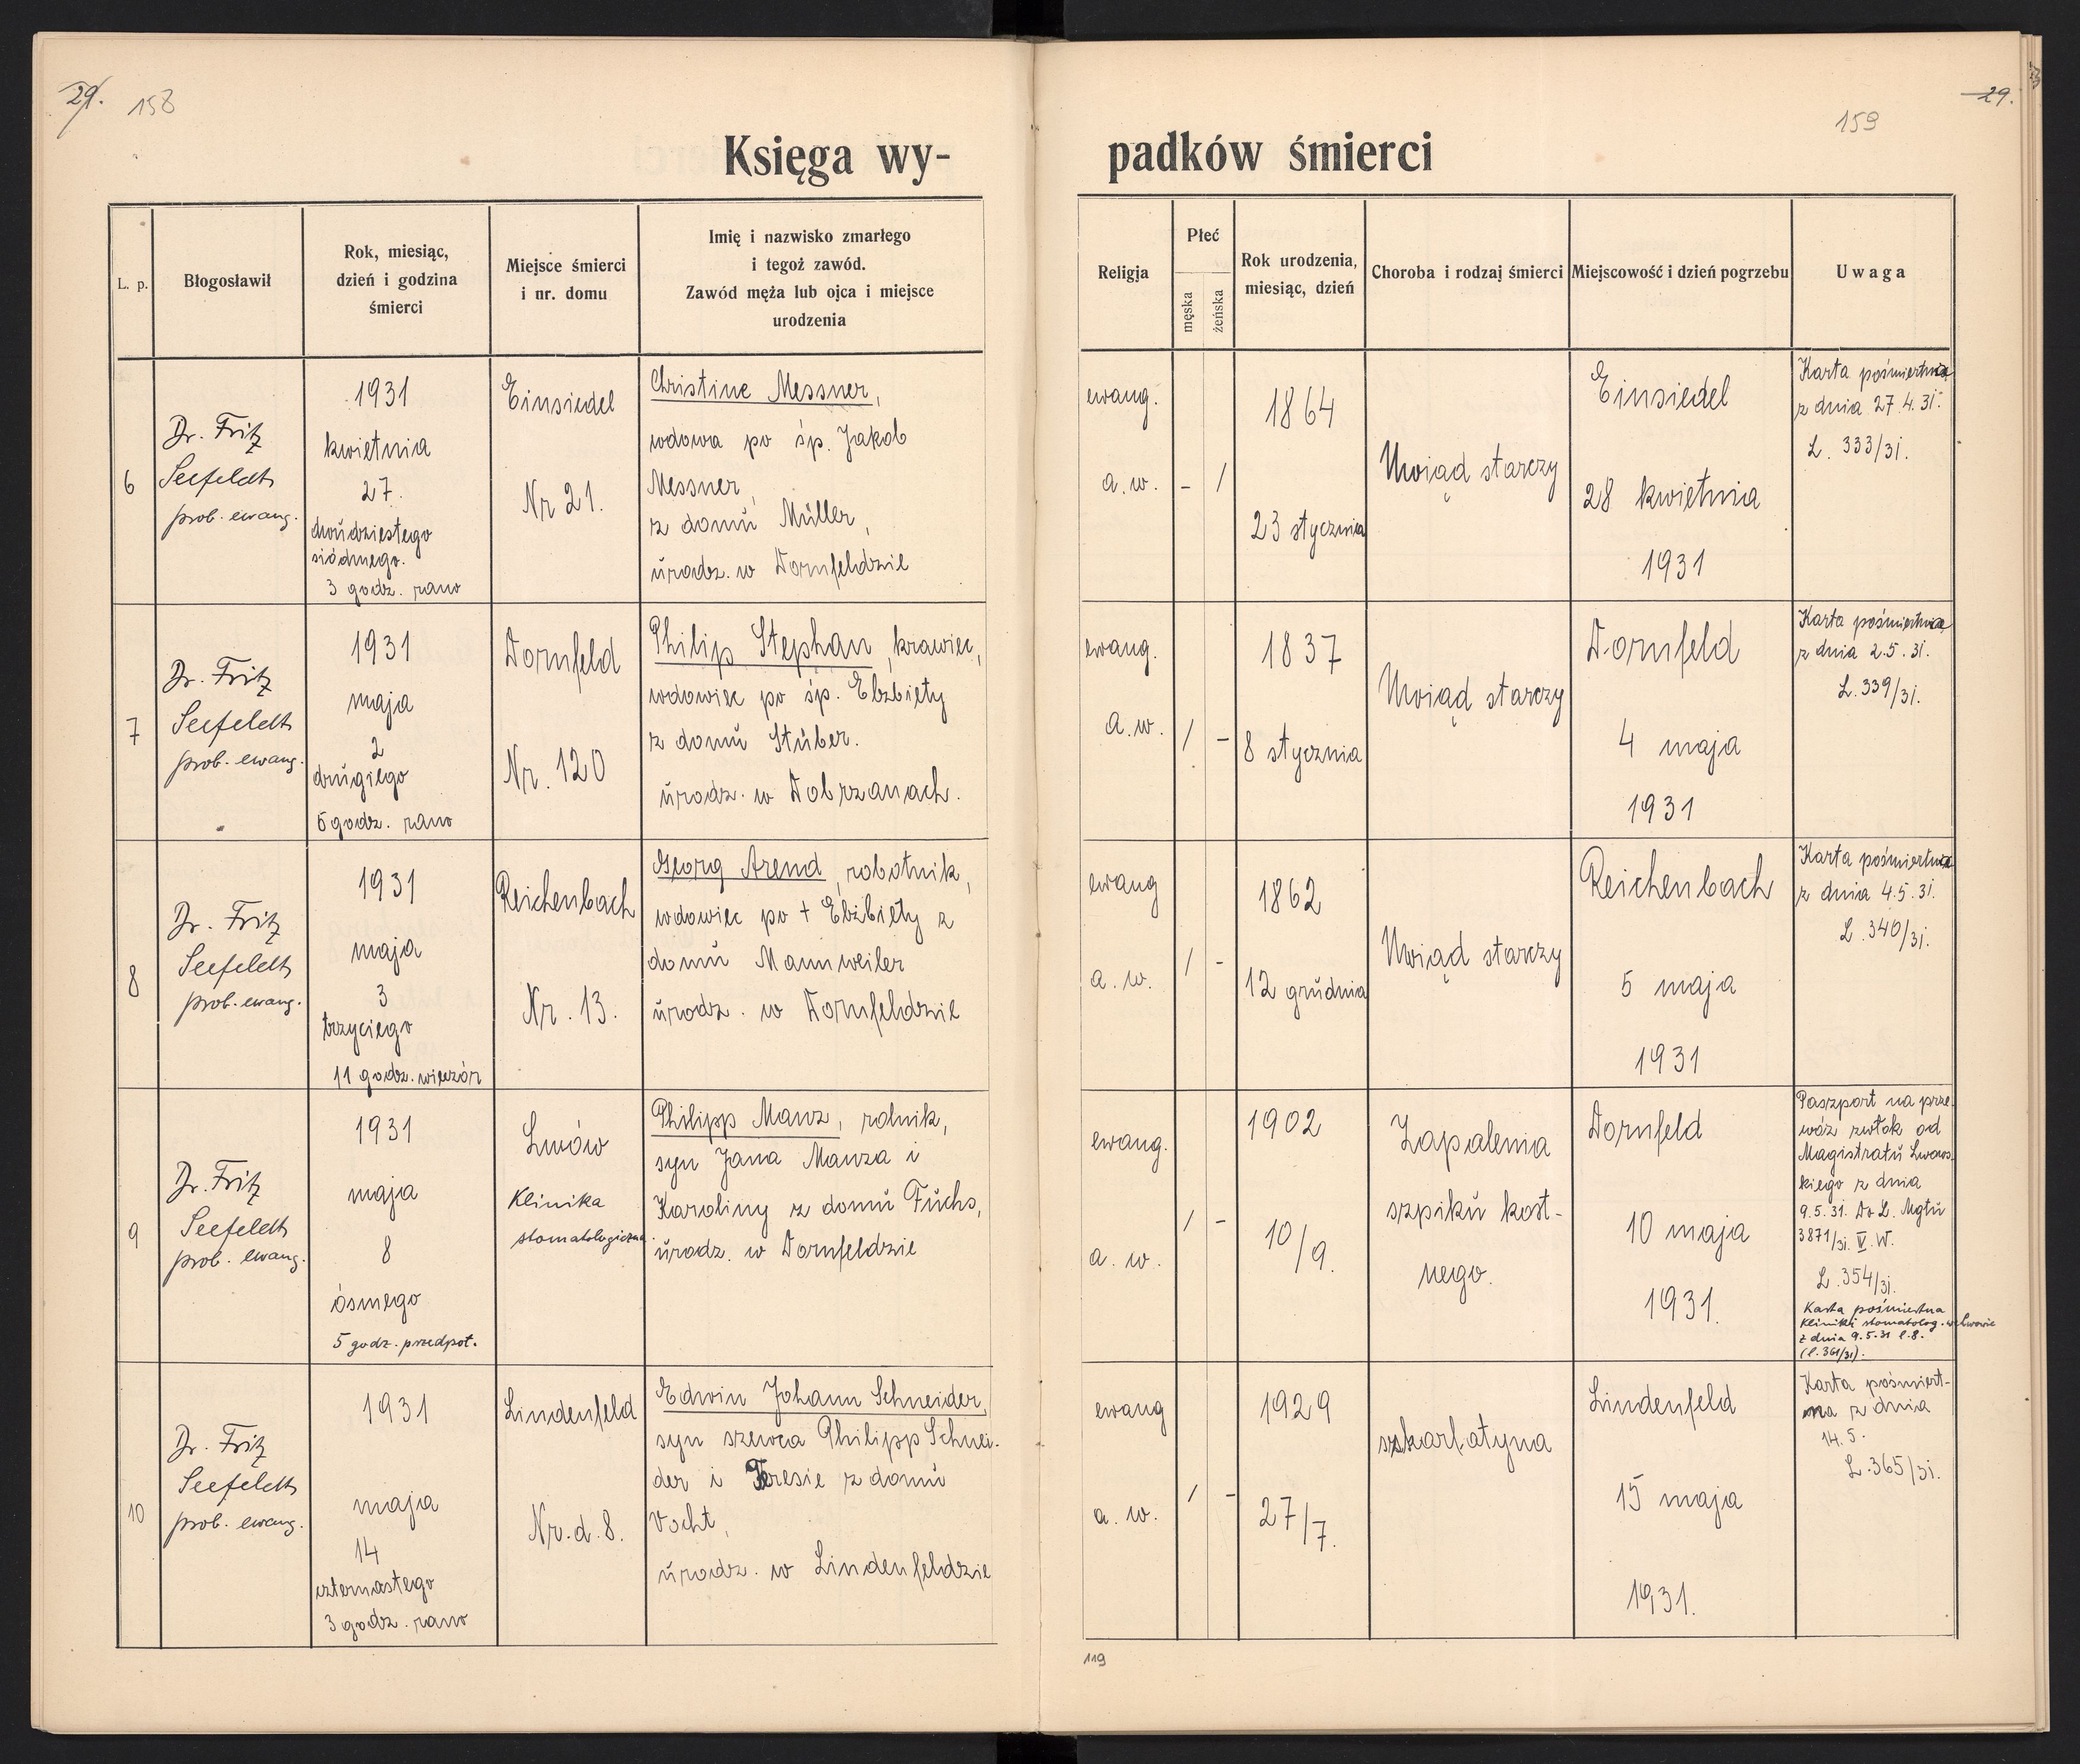 29. 158
159 29.
Księga wy-
padków śmierci
L. p.
Błogosławił
Rok, miesiąc,
dzień i godzina
śmierci
Miejsce śmierci
i nr. domu
Imię i nazwisko zmarłego
i tegoż zawód.
Zawód męża lub ojca i miejsce
urodzenia
Religja
Płeć
męska
żeńska
Rok urodzenia,
miesiąc, dzień
Choroba i rodzaj śmierci
Miejscowość i dzień pogrzebu
Uwaga
6
Dr. Fritz
Seefeldt
prob. ewang.
1931
kwietnia
27.
dwudziestego
siódmego.
3 godz. rano
Einsiedel
Nr 21.
Christine Messner,
wdowa po śp. Jakob
Messner,
z domu Müller,
urodz. w Dornfeldzie
ewang.
a. w.
-
/
1864
23 stycznia
Uwiąd starczy
Einsiedel
28 kwietnia
1931
Karta pośmiertna
z dnia 27.4.31.
L. 333/31.
7
Dr. Fritz
Seefeldt
prob. ewang.
1931
maja
2
drugiego
5 godz. rano
Dornfeld
Nr. 120
Philip Stephan, krawiec,
wdowiec po śp. Elżbiety
z domu Stüber.
urodz. w Dobrzanach.
ewang.
a. w.
/
-
1837
8 stycznia
Uwiąd starczy
Dornfeld
4 maja
1931
Karta pośmiertna
z dnia 2.5.31.
L. 339/31.
8
Dr. Fritz
Seefeldt
prob. ewang.
1931
maja
3
trzyciego
11 godz. wieczór
Reichenbach
Nr. 13.
Georg Arend, robotnik,
wdowiec po + Elżbiety z
domu Mannweiler
urodz. w Dornfeldzie
ewang
a. w.
/
-
1862
12 grudnia
Uwiąd starczy
Reichenbach
5 maja
1931
Karta pośmiertna
z dnia 4.5.31.
L. 340/31.
9
Dr. Fritz
Seefeldt
prob. ewang.
1931
maja
8
ósmego
5 godz. przedpoł.
Lwów
Klinika
stomatologiczna
Philipp Manz, rolnik,
syn Jana Manza i
Karoliny z domu Fuchs,
urodz. w Dornfeldzie
ewang.
a. w.
/
-
1902
10/9.
Zapalenia
szpiku kost-
nego.
Dornfeld
10 maja
1931.
Paszport na prze-
wóz zwłok od
Magistratu Lwows-
kiego z dnia
9.5.31. Do L. Mgtu
3871/31. V. W.
L. 354/31.
Karta pośmiertna
Kliniki stomatolog. we Lwowie
z dnia 9.5.31 l. 8.
(l. 361/31).
10
Dr. Fritz
Seefeldt
prob. ewang.
1931
maja
14
czternastego
3 godz. rano
Lindenfeld
Nr. d. 8.
Edwin Johann Schneider,
syn szewca Philipp Schnei-
der i Teresie z domu
Vocht,
urodz. w Lindenfeldzie
ewang
a. w.
/
-
1929
27/7.
szkarlatyna
Lindenfeld
15 maja
1931.
Karta pośmiert-
na z dnia
14.5.
L. 365/31.
119